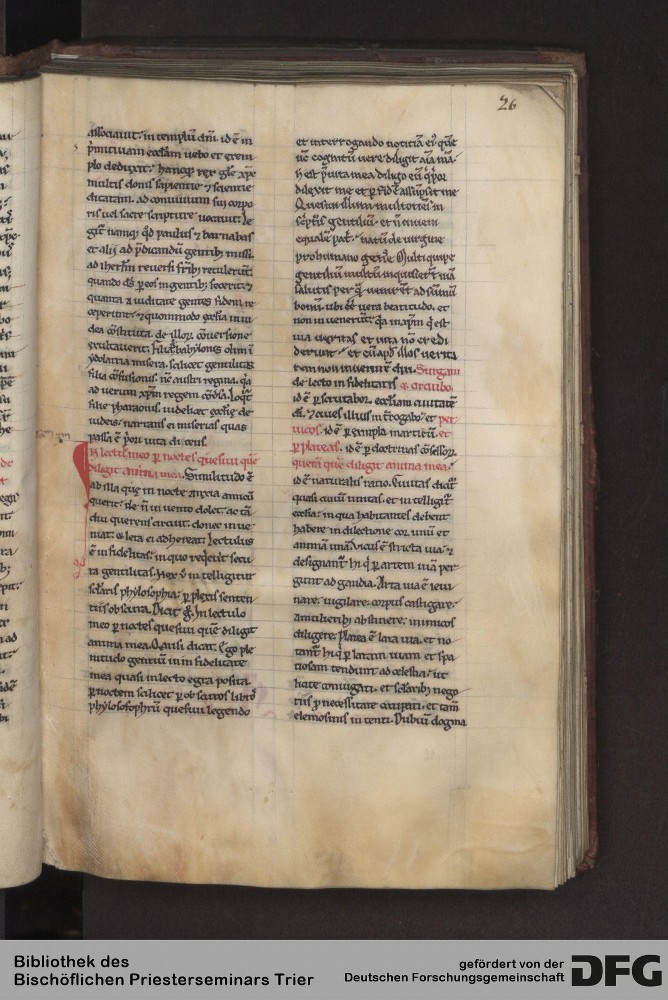 26
associauit. in templũ dñi. id ẽ in
p̃mitiuam ecclãm uerbo et exem
plo deduxit. hancq; rex glẽ xp̃c
multis donis sapientie ⁊ scientie
ditatam. ad conuiuium sui corpo
ris uel sacre scripture uocauit. Le
git᷑ namq; qd̃ paulus ⁊ barnabas
et alij ad p̃dicandũ gentib; missi.
ad ihrl̃m reuersi frĩb; retulerũt.
quando ds̃ p eos in gentib; fecerit. ⁊
quanta auiditate gentes fidem re
ceperunt. ⁊ quomodo eccl̃ia in iu
dea cõstituta. de illoꝝ cõuersione
exultauerit. Filia babylonis olim ĩ
ydolatria misera. scilicet gentilitas
filia cõfusionis. nc̃ austri regina. q̃a
ad uerum xp̃m regem
filie pharaonis. iudeis narrans ei miserias quas
passa ẽ p̃ori uita di cens.
In lectulo meo p noctes quesiui quẽ
diligit anima mea. Similitudo ẽ
ab illa quę in nocte anxia amicũ
querit. de ñ in uento dolet. ac tã
diu querens circuit. donec inue
niat. ⁊ leta ei adhereat. Lectulus
ẽ infidelitas. in quo req̃erit secu
ra gentilitas. Nox ũ intelligitur
sclaris phylosophia. p plexis senten
tiis obscura. Dicit g̃. In lectulo
meo p noctes quesiui quẽ diligit
anima mea. Quasi dicat. Ego ple
nitudo gentiũ in infidelitate
mea quasi in lecto egra posita.
p noctem scilicet p obscuros libros
phylosophoꝝ quesiui legendo
et interrogando noticiã ei᷒. quẽ
nc̃ cognitũ uere diligit aĩa mã.
h est p uita mea diligo eũ q̃ prior
dilexit me et p fidẽ assũpsit me
Quesiui illum multociens in
scriptis gentiliũ. et ñ inueni
equalẽ patri. natũ de uirgine
pro humano genere. Multi quipe
gentiliũ multũ inquisierũt uiã
salutis per q̃ uenirẽt ad sũmũ
bonũ. ubi eẽt uera beatitudo. et
non inuenerũt. q̃a xp̃m q̃ est
uia ueritas et uita nõ credi
derunt. et eũ apd̃ illos uerita
tem non inuenire diu. Surgam
de lecto infidelitatis ⁊ circuibo.
id ẽ p scrutabor. ecclesiam ciuitatẽ
dĩ. ⁊ ciues illius interrogabo. et per
uicos. id ẽ p exempla martirũ. et
p plateas. id ẽ p doctrinas cõfessoꝝ.
querã quẽ diligit anima mea.
id ẽ naturalis ratio. Ciuitas dicit᷑
quasi ciuiũ unitas. et intelligit᷑
eccl̃ia. in qua habitantes debent
habere in dilectione cor unũ et
animã unã. Vicus ẽ stricta uia. ⁊
designant᷑ hi q̃ p artem uiã per
gunt ad gaudia. Arta uia ẽ ieiu
nare. uigilare. corpus castigare.
amulierib; abstinere. inimicos
diligere. Platea ẽ lata uia. et no
tant᷑ hi q̃ p latam uiam et spa
ciosam tendunt ad celestia. ut
licite coniugati. et sclarib; nego
tiis p necessitate occupati. et tam̃
elemosinis in tenti. Dubiũ dogma
Bibliothek des
Bischöflichen Priesterseminars Trier
gefördert von der
Deutschen Forschungsgemeinschaft
DFG